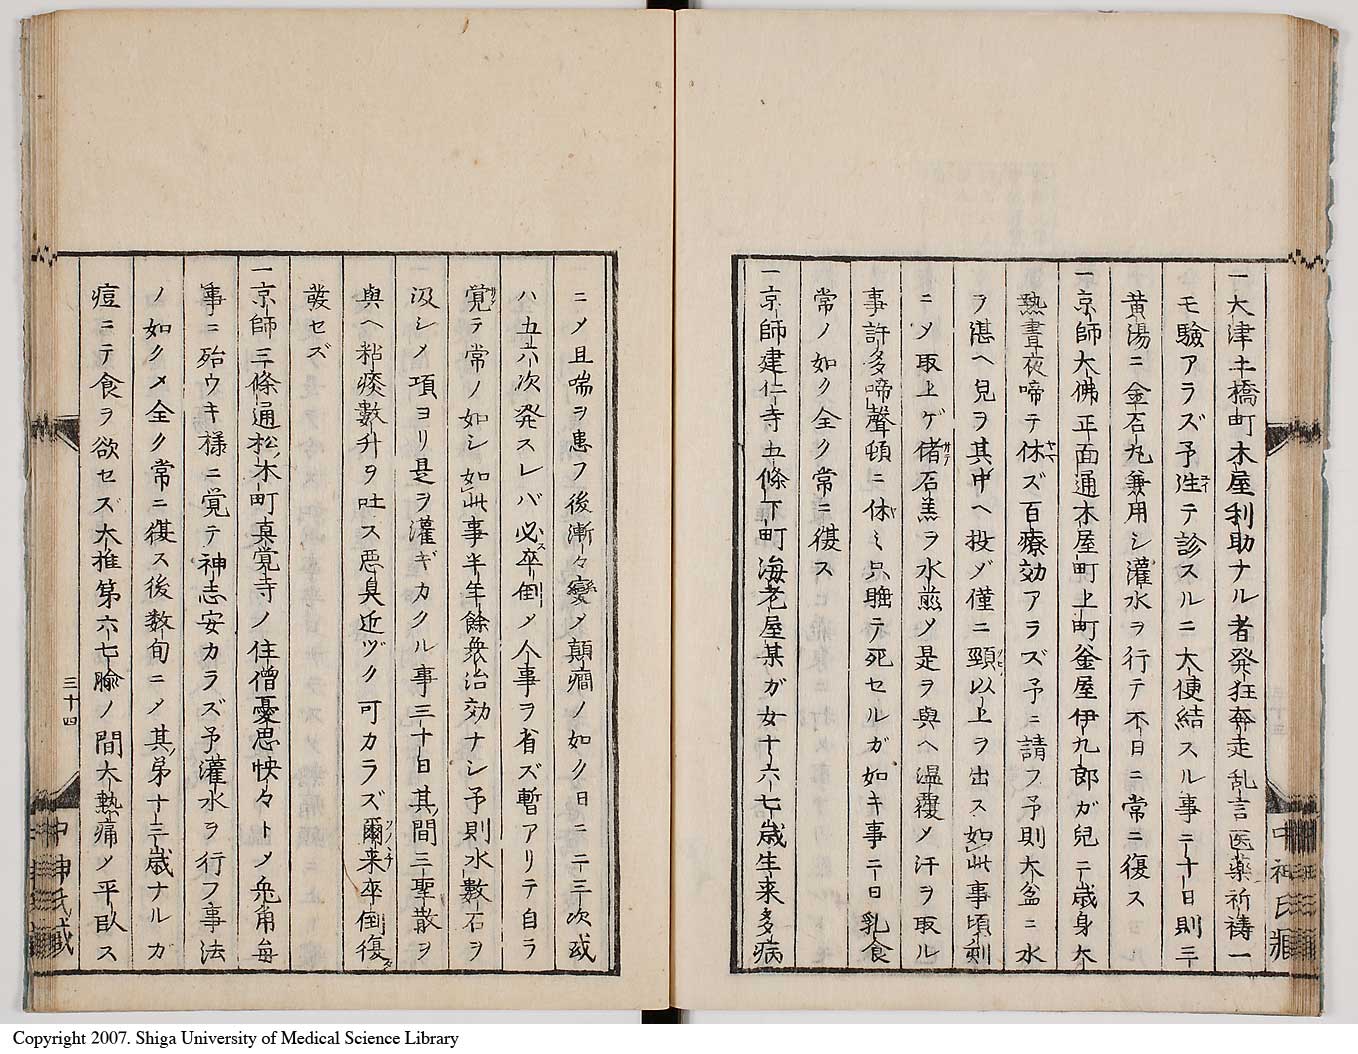 一大津土橋町木屋利助ナル者発狂奔走乱言医薬祈祷一
モ験アラズ予往テ診スルニ大便結スル事二十日則三
黄湯ニ金石丸兼用シ灌水ヲ行テ不日ニ常ニ復ス
一京師大佛正面通木屋町上町釜屋伊九郎ガ兒二歳身大
熱晝夜啼テ休ズ百療効アラズ予ニ請フ予則大盆ニ水
ヲ湛ヘ兒ヲ其中ヘ投ゾ僅ニ頸以上ヲ出ス如此事頃刻
ニメ取上ゲ偖石羔ヲ水煎メ是ヲ與ヘ温覆メ汗ヲ取ル
事許多啼聲頓ニ休ミ只睡テ死セルガ如キ事二日乳食
常ノ如ク全ク常ニ復ス
一京師建仁寺五條下町海老屋某ガ女十六七歳生来多病
ニメ且喘ヲ患フ後漸々變メ顛癇ノ如ク日ニ二三次或
ハ五六次発スレバ必卒倒メ人事ヲ省ズ暫アリテ自ラ
覚テ常ノ如シ如此事半年餘衆治効ナシ予則水數石ヲ
汲シメ項ヨリ是ヲ灌ギカクル事三十日其間三聖散ヲ
與ヘ粘痰數升ヲ吐ス悪臭近ヅク可カラズ爾来卒倒復
發セズ
一京師三條通松ノ木町真覚寺ノ住僧憂思怏々トメ兎角毎
事ニ殆ウキ様ニ覚テ神志安カラズ予灌水ヲ行フ事法
ノ如クメ全ク常ニ復ス後数旬ニメ其弟十三歳ナルガ
痘ニテ食ヲ欲セズ大椎第六七腧ノ間大熱痛メ平臥ス
三十四
中神氏蔵